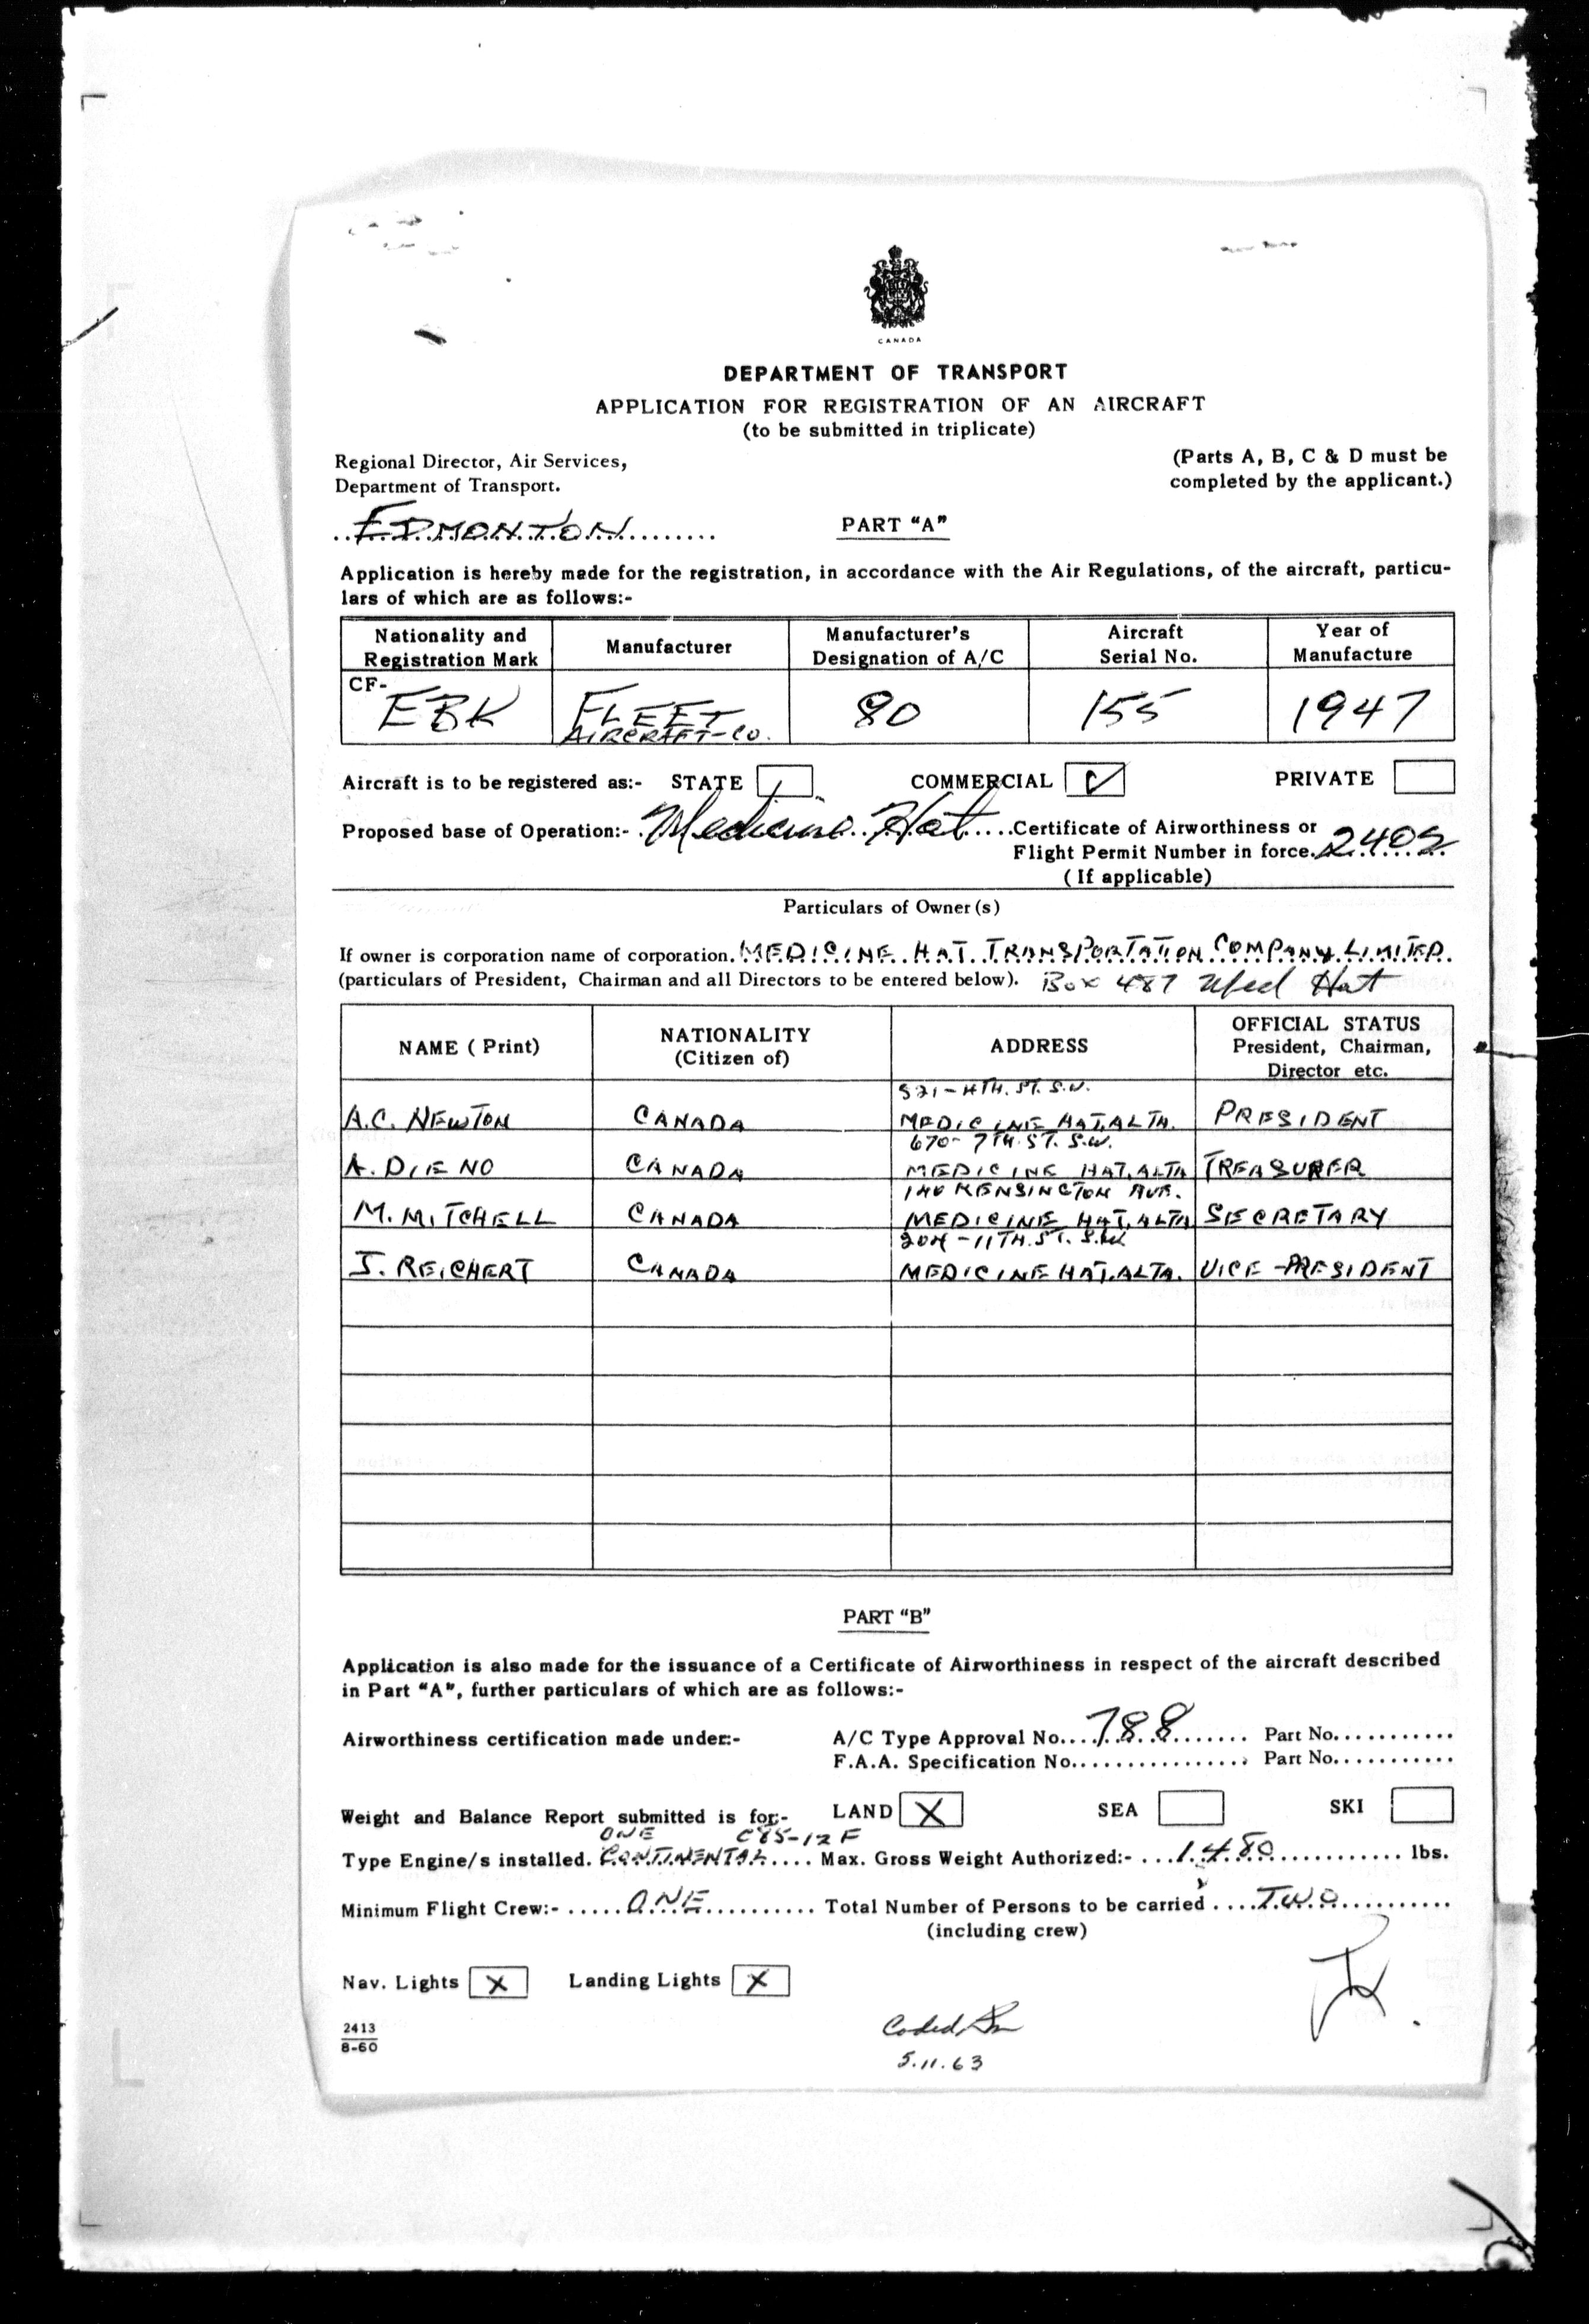 CANADA
DEPARTMENT OF TRANSPORT
APPLICATION FOR REGISTRATION OF AN AIRCRAFT
(to be submitted in triplicate)
Regional Director, Air Services,
Department of Transport.
(Parts A, B, C & D must be
completed by the applicant.)
EDMONTON
PART "A"
Application is hereby made for the registration, in accordance with the Air Regulations, of the aircraft, particu-
lars of which are as follows:-
Nationality and Registration Mark
Manufacturer
Manufacturer's Designation of A/C
Aircraft Serial No.
Year of Manufacture
CF- EBK
FLEET AIRCRAFT-CO.
80
155
1947
Aircraft is to be registered as:- STATE COMMERCIAL PRIVATE
Proposed base of Operation:- Medicine Hat Certificate of Airworthiness or
Flight Permit Number in force. 2402
(If applicable)
Particulars of Owner(s)
If owner is corporation name of corporation. MEDICINE HAT TRANSPORTATION COMPANY LIMITED
(particulars of President, Chairman and all Directors to be entered below). Box 487 Med Hat
NAME (Print)
NATIONALITY (Citizen of)
ADDRESS
OFFICIAL STATUS President, Chairman, Director etc.
521-4TH. ST. S.W.
A.C. NEWTON CANADA MEDICINE HAT, ALTA. PRESIDENT
670-7TH. ST. S.W.
A. DIENO CANADA MEDICINE HAT, ALTA TREASURER
140 KENSINGTON AVE.
M. MITCHELL CANADA MEDICINE HAT, ALTA SECRETARY
204-11TH. ST. S.W.
J. REICHERT CANADA MEDICINE HAT, ALTA. VICE-PRESIDENT
PART "B"
Application is also made for the issuance of a Certificate of Airworthiness in respect of the aircraft described
in Part "A", further particulars of which are as follows:-
Airworthiness certification made under:- A/C Type Approval No. 788 Part No.
F.A.A. Specification No. Part No.
Weight and Balance Report submitted is for:- LAND X SEA SKI
ONE C85-12F
Type Engine/s installed. CONTINENTAL Max. Gross Weight Authorized:- 1480 lbs.
Minimum Flight Crew:- ONE Total Number of Persons to be carried TWO
(including crew)
Nav. Lights X Landing Lights X
2413
8-60
Coded
5.11.63